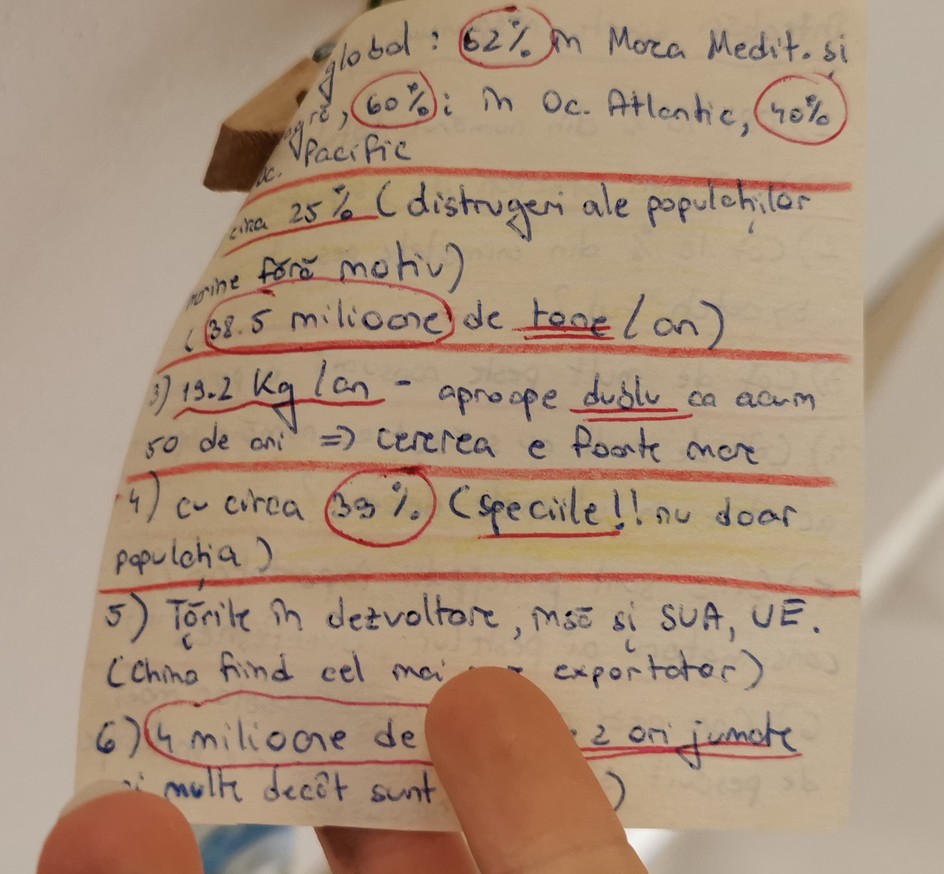 global : 62% în Marea Medit. și
60% ; în Oc. Atlantic, 40%
Oc. Pacific
circa 25% (distrugeri ale populațiilor
marine fără motiv)
(38.5 milioane de tone/an)
3) 19.2 Kg/an - aproape dublu ca acum
50 de ani => cererea e foarte mare
4) cu circa 39% (speciile!! nu doar
populația)
5) Țările în dezvoltare, însă și SUA, UE.
(China fiind cel mai exportator)
6) 4 milioane de 2 ori jumate
multe decât sunt )